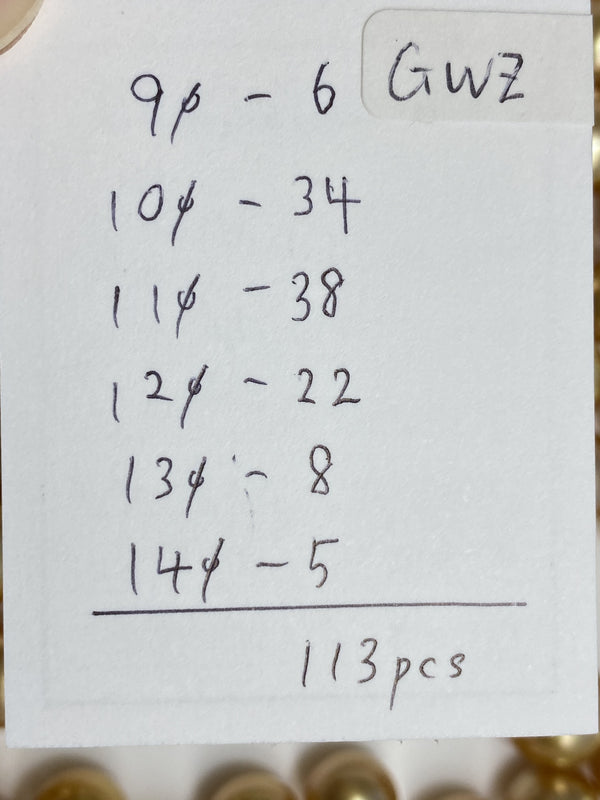 GWZ
9φ - 6
10φ - 34
11φ - 38
12φ - 22
13φ - 8
14φ - 5
113pcs